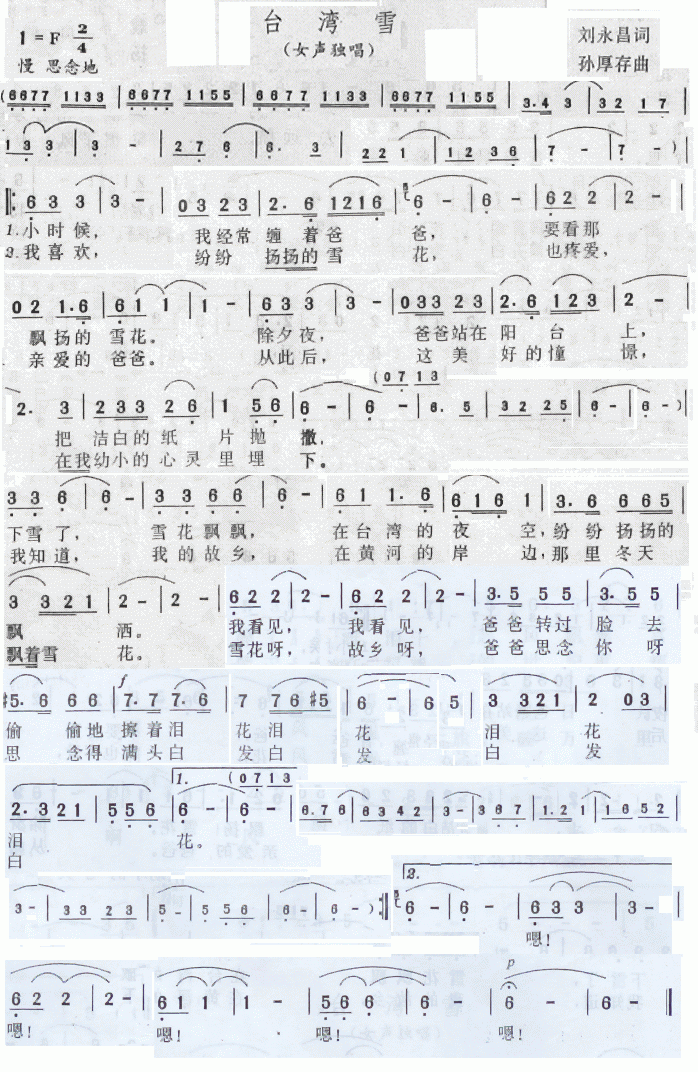 台 湾 雪
(女声独唱)
1=F 2/4
慢 思念地
刘永昌词
孙厚存曲
(6677 1133 | 6677 1155 | 6677 1133 | 6677 1155 | 3·43 | 32 17 |
133 | 3 - | 276 | 6· 3 | 221 | 1236 | 7 - | 7 - )
‖: 633 | 3 - | 03 23 | 2·6 1216 | 6 - | 6 - | 622 | 2 - |
1.小时候, 我经常 缠着爸 爸, 要看那
2.我喜欢, 纷纷 扬扬的雪 花, 也疼爱,
02 1·6 | 611 | 1 - | 633 | 3 - | 033 23 | 2·6 123 | 2 - |
飘扬的 雪花。 除夕夜, 爸爸站在 阳 台 上,
亲爱的 爸爸。 从此后, 这美 好的憧 憬,
(0713
2· 3 | 233 26 | 1 56 | 6 - | 6 - | 6· 5 | 32 25 | 6 - | 6 - )
把 洁白的纸 片抛 撒,
在我幼小的心 灵里埋 下。
33 6 | 6 - | 33 66 | 6 - | 61 1·6 | 616 1 | 3·6 665 |
下雪了, 雪花飘飘, 在台湾的 夜 空,纷纷扬扬的
我知道, 我的故乡, 在黄河的 岸 边,那里冬天
3 321 | 2 - | 2 - | 622 | 2 - | 622 | 2 - | 3·5 55 | 3·5 55
飘 洒。 我看见, 我看见, 爸爸转过 脸 去
飘着雪 花。 雪花呀, 故乡呀, 爸爸思念 你 呀
f
#5·6 66 | 7·7 76 | 7 76 #5 | 6 - | 6 5 | 3 321 | 2 03 |
偷 偷地 擦着泪 花泪 花 泪 花
思 念得 满头白 发白 发 白 发
1. (0713
2·321 | 556 | 6 - | 6 - | 6·76 | 6342 | 3 - | 367 | 1·21 | 1652 |
泪 花。
白
2.
3 - | 33 23 | 5 - | 556 | 6 - | 6 - ) :‖ 6 - | 6 - | 633 | 3 - |
嗯!
p
622 | 2 - | 611 | 1 - | 566 | 6 - | 6 - | 6 - ‖
嗯! 嗯! 嗯! 嗯!